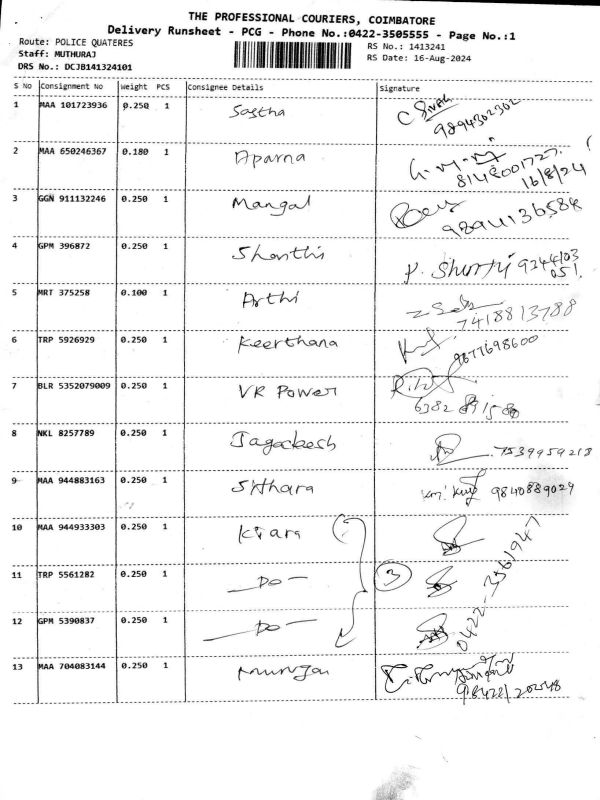 THE PROFESSIONAL COURIERS, COIMBATORE
Delivery Runsheet - PCG - Phone No.:0422-3505555 - Page No.:1
Route: POLICE QUATERES
RS No.: 1413241
Staff: MUTHURAJ
RS Date: 16-Aug-2024
DRS No.: DCJB141324101
S No Consignment No Weight PCS Consignee Details Signature
1 MAA 101723936 0.250 1 Sastha 9894302302
2 MAA 650246367 0.180 1 Aparna
16/8/24
3 GGN 911132246 0.250 1 Mangal 9894136584
4 GPM 396872 0.250 1 Shanthi P. Shanthi 9244103
051.
5 MRT 375258 0.100 1 Arthi
7418813788
6 TRP 5926929 0.250 1 Keerthana 9677698600
7 BLR 5352079009 0.250 1 VR Power
6382
8 NKL 8257789 0.250 1 Jagadeesh 7539959218
9 MAA 944883163 0.250 1 Sithara 9840889029
10 MAA 944933303 0.250 1 Kiara
11 TRP 5561282 0.250 1 —Do— 3
12 GPM 5390837 0.250 1 —Do— 0422-3561947
13 MAA 704083144 0.250 1 Murugan